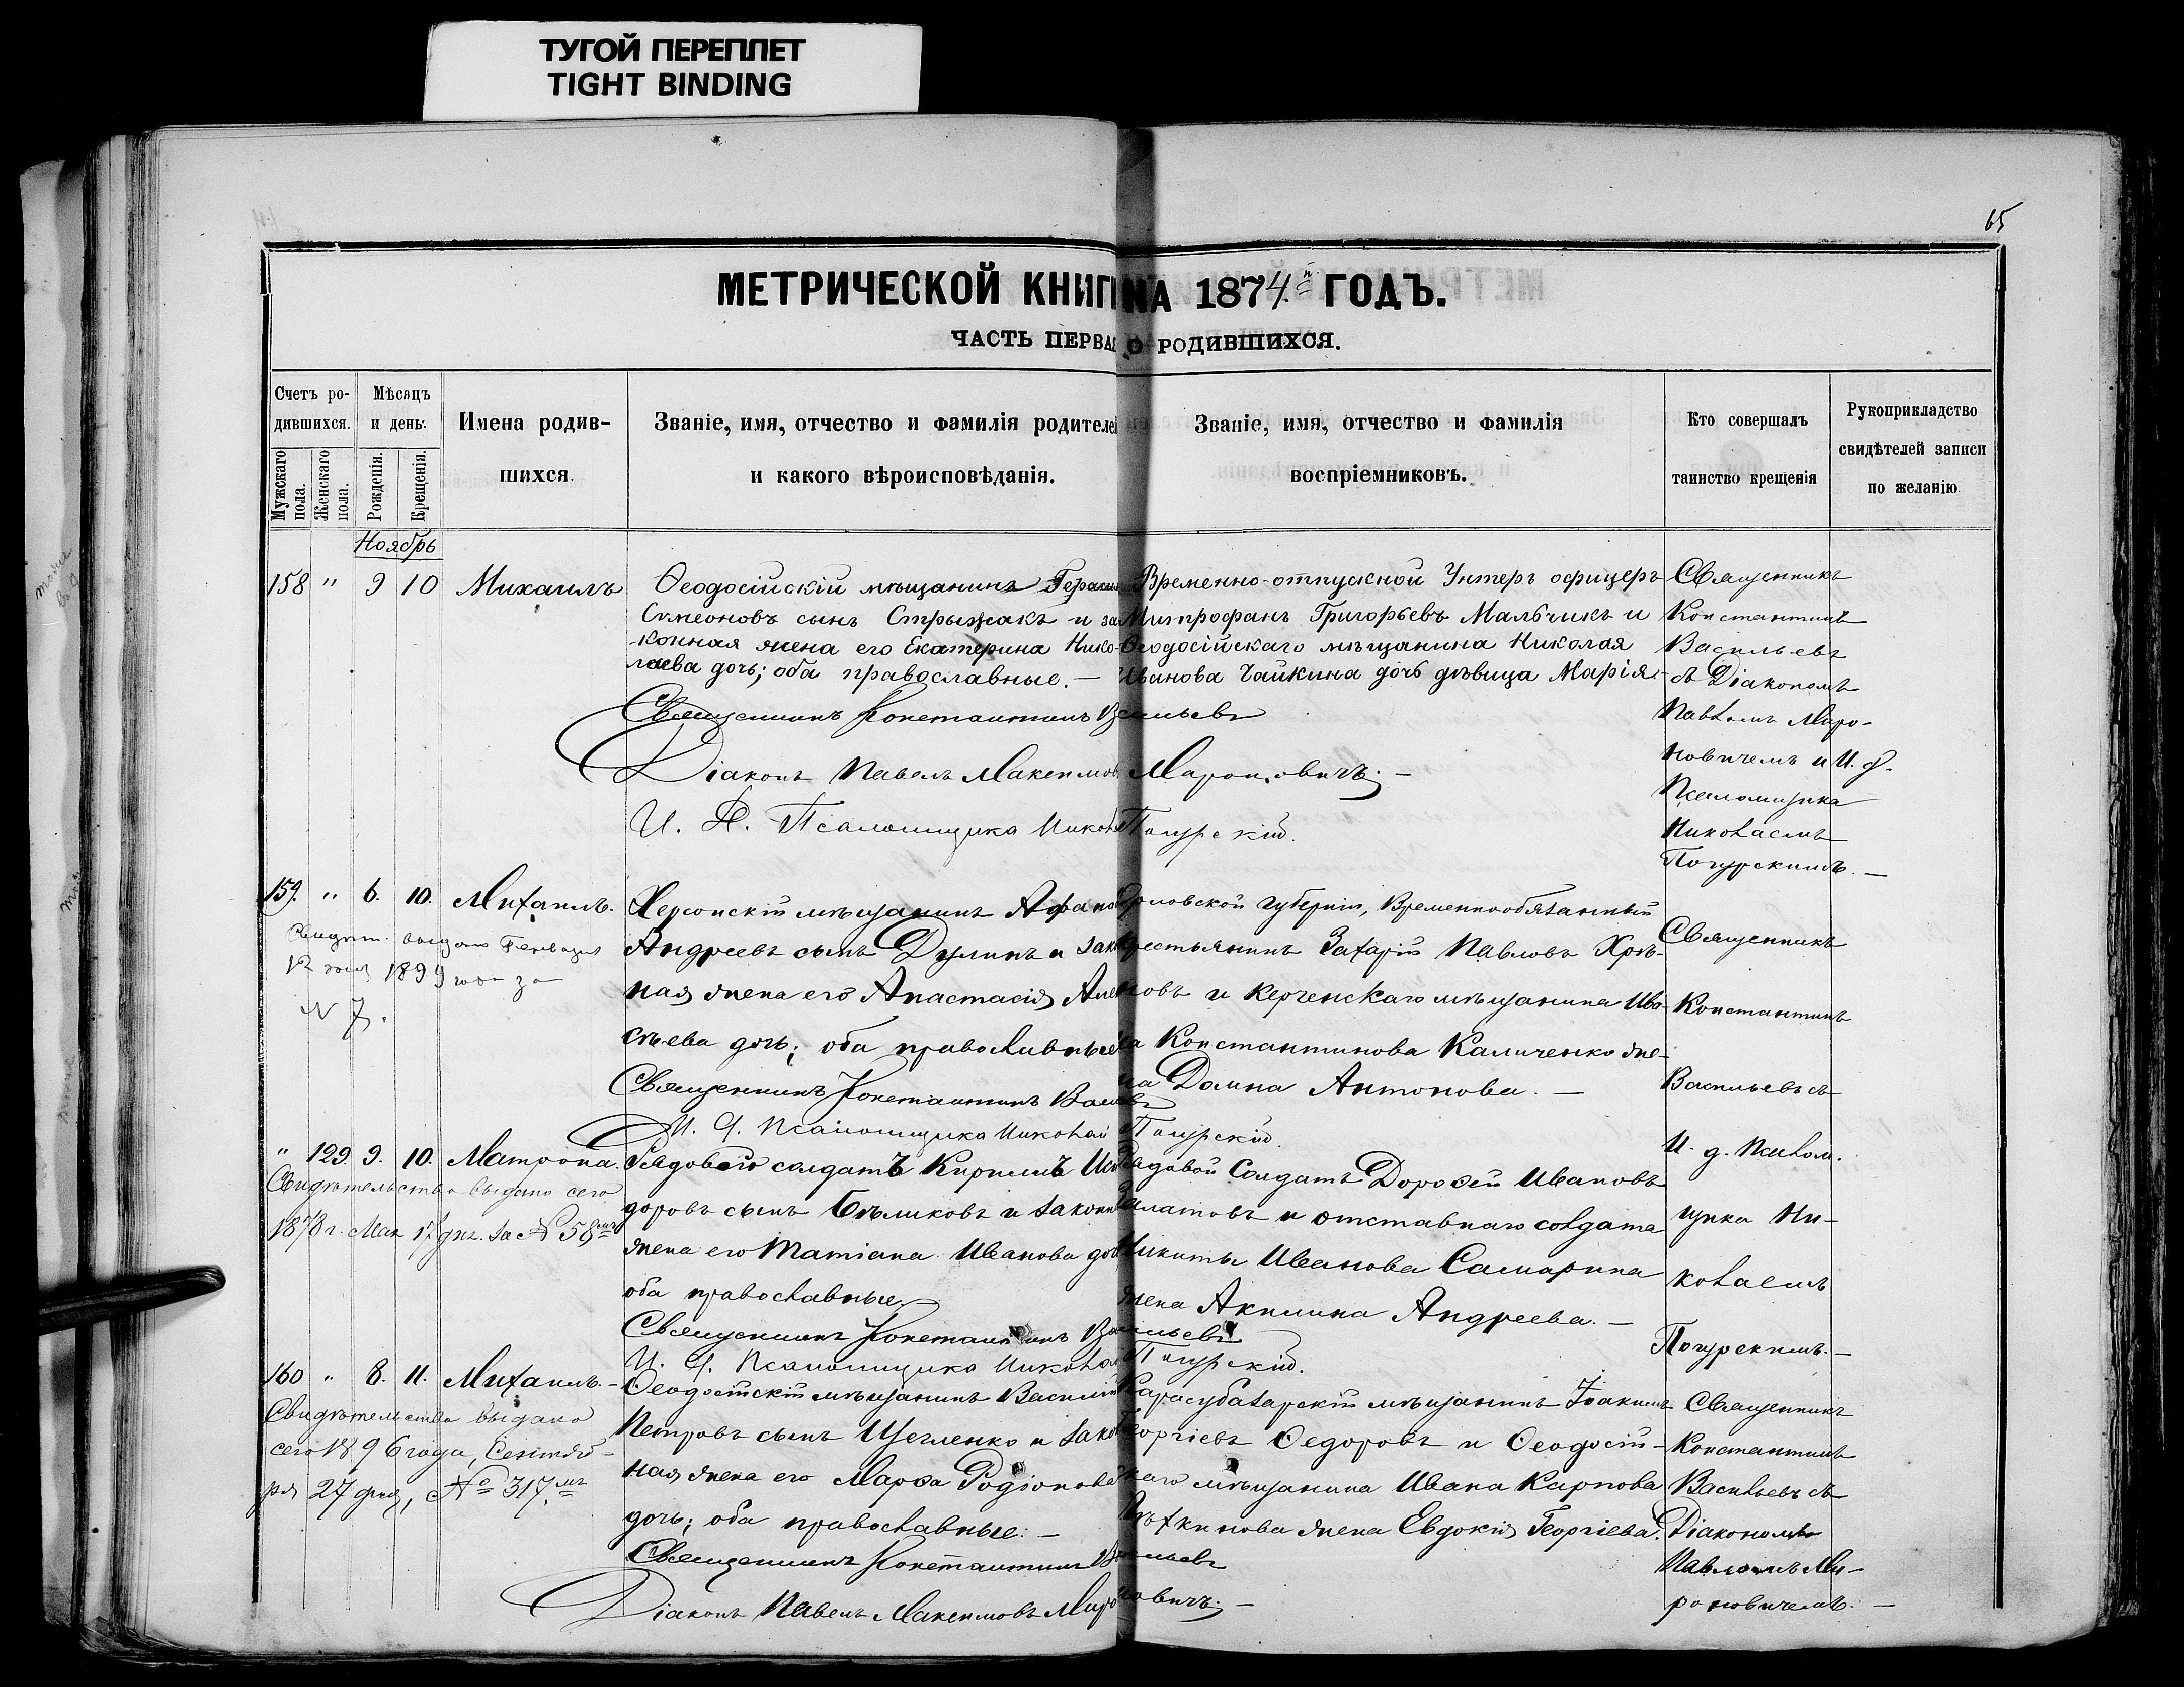 ТУГОЙ ПЕРЕПЛЕТ
TIGHT BINDING
65
МЕТРИЧЕСКОЙ КНИГИ НА 1874.й ГОДЪ.
ЧАСТЬ ПЕРВАЯ О РОДИВШИХСЯ.
Счетъ ро-
дившихся.
Мужскаго пола.
Женскаго пола.
Мѣсяцъ
и день.
Рожденія.
Крещенія.
Имена родив-
шихся.
Званіе, имя, отчество и фамилія родителей
и какого вѣроисповѣданія.
Званіе, имя, отчество и фамилія
воспріемниковъ.
Кто совершалъ
таинство крещенія
Рукоприкладство
свидѣтелей записи
по желанію.
Ноябрь
158 " 9 10 Михаилъ
Ѳеодосійскій мѣщанинъ
Симеоновъ сынъ Стрыжакъ и за
конная жена его Екатерина Нико-
лаева дочь; оба православные. —
Временно-отпускной Унтеръ офицеръ
Митрофанъ Григорьевъ Мальчикъ и
Ѳеодосійскаго мѣщанина Николая
Иванова Чайкина дочь дѣвица Марія.
Священникъ
Константинъ
Васильевъ
съ Діакономъ
Павломъ Миро-
новичемъ и И. д.
Псаломщика
Николаемъ
Погурскимъ. —
Священникъ Константинъ Васильевъ
Діаконъ Павелъ Максимовъ Мироновичъ. —
И. Д. Псаломщика Николай Погурскій.
159. " 6. 10. Михаилъ.
выдано Генваря
12 дня 1899 года за
№ 7.
Херсонскій мѣщанинъ
Андреевъ сынъ Дулинъ и зак
ная жена его Анастасія Але
сѣева дочь; оба православные
Орловской губерніи, Временнообязанный
крестьянинъ Захарій Павловъ Хрѣ-
новъ и Керченскаго мѣщанина Ива-
на Константинова Каличенко же-
на Домна Антонова. —
Священникъ
Константинъ
Васильевъ съ
И. д. Псалом.
щика Ни-
колаемъ
Погурскимъ. —
Священникъ Константинъ Васильевъ
И. д. Псаломщика Николай Погурскій.
" 129. 9. 10. Матрона.
Свидѣтельство выдано сего
1878 г. Мая 17 дня. за № 58мъ
Рядовой солдатъ Кириллъ Иси
доровъ сынъ Бѣликовъ и законн
жена его Татіана Иванова доч
оба православные. —
Рядовой Солдатъ Дороѳей Ивановъ
и отставнаго солдата
Никиты Иванова Самарина
жена Акилина Андреева. —
Священникъ Константинъ Васильевъ
И. д. Псаломщика Николай Погурскій.
160 " 8. 11. Михаилъ. —
Свидѣтельство выдано
сего 1896 года, Сентяб-
ря 27 дня, № 317.мъ
Ѳеодосійскій мѣщанинъ Василій
Петровъ сынъ Щегленко и закон
ная жена его Марѳа Родіонова
дочь; оба православные. —
Карасубазарскій мѣщанинъ Іоакимъ
Георгіевъ Ѳедоровъ и Ѳеодосій-
скаго мѣщанина Ивана Карпова
жена Евдокія Георгіева.
Священникъ
Константинъ
Васильевъ съ
Діакономъ
Павломъ Ми-
роновичемъ. —
Священникъ Константинъ Васильевъ
Діаконъ Павелъ Максимовъ Мироновичъ. —